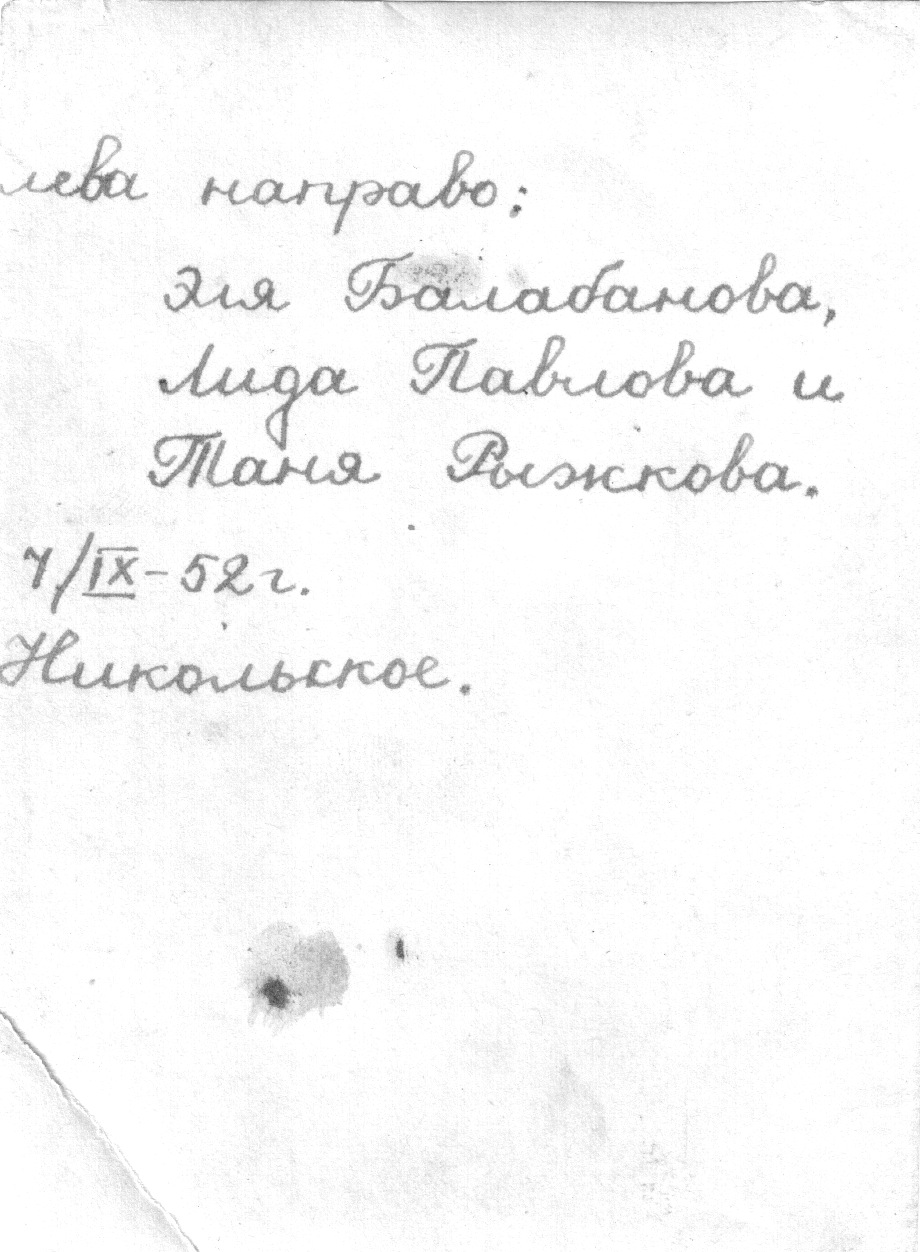 лева направо:
Эля Балабанова,
Лида Павлова и
Таня Рыжкова.
7/IX-52г.
Никольское.